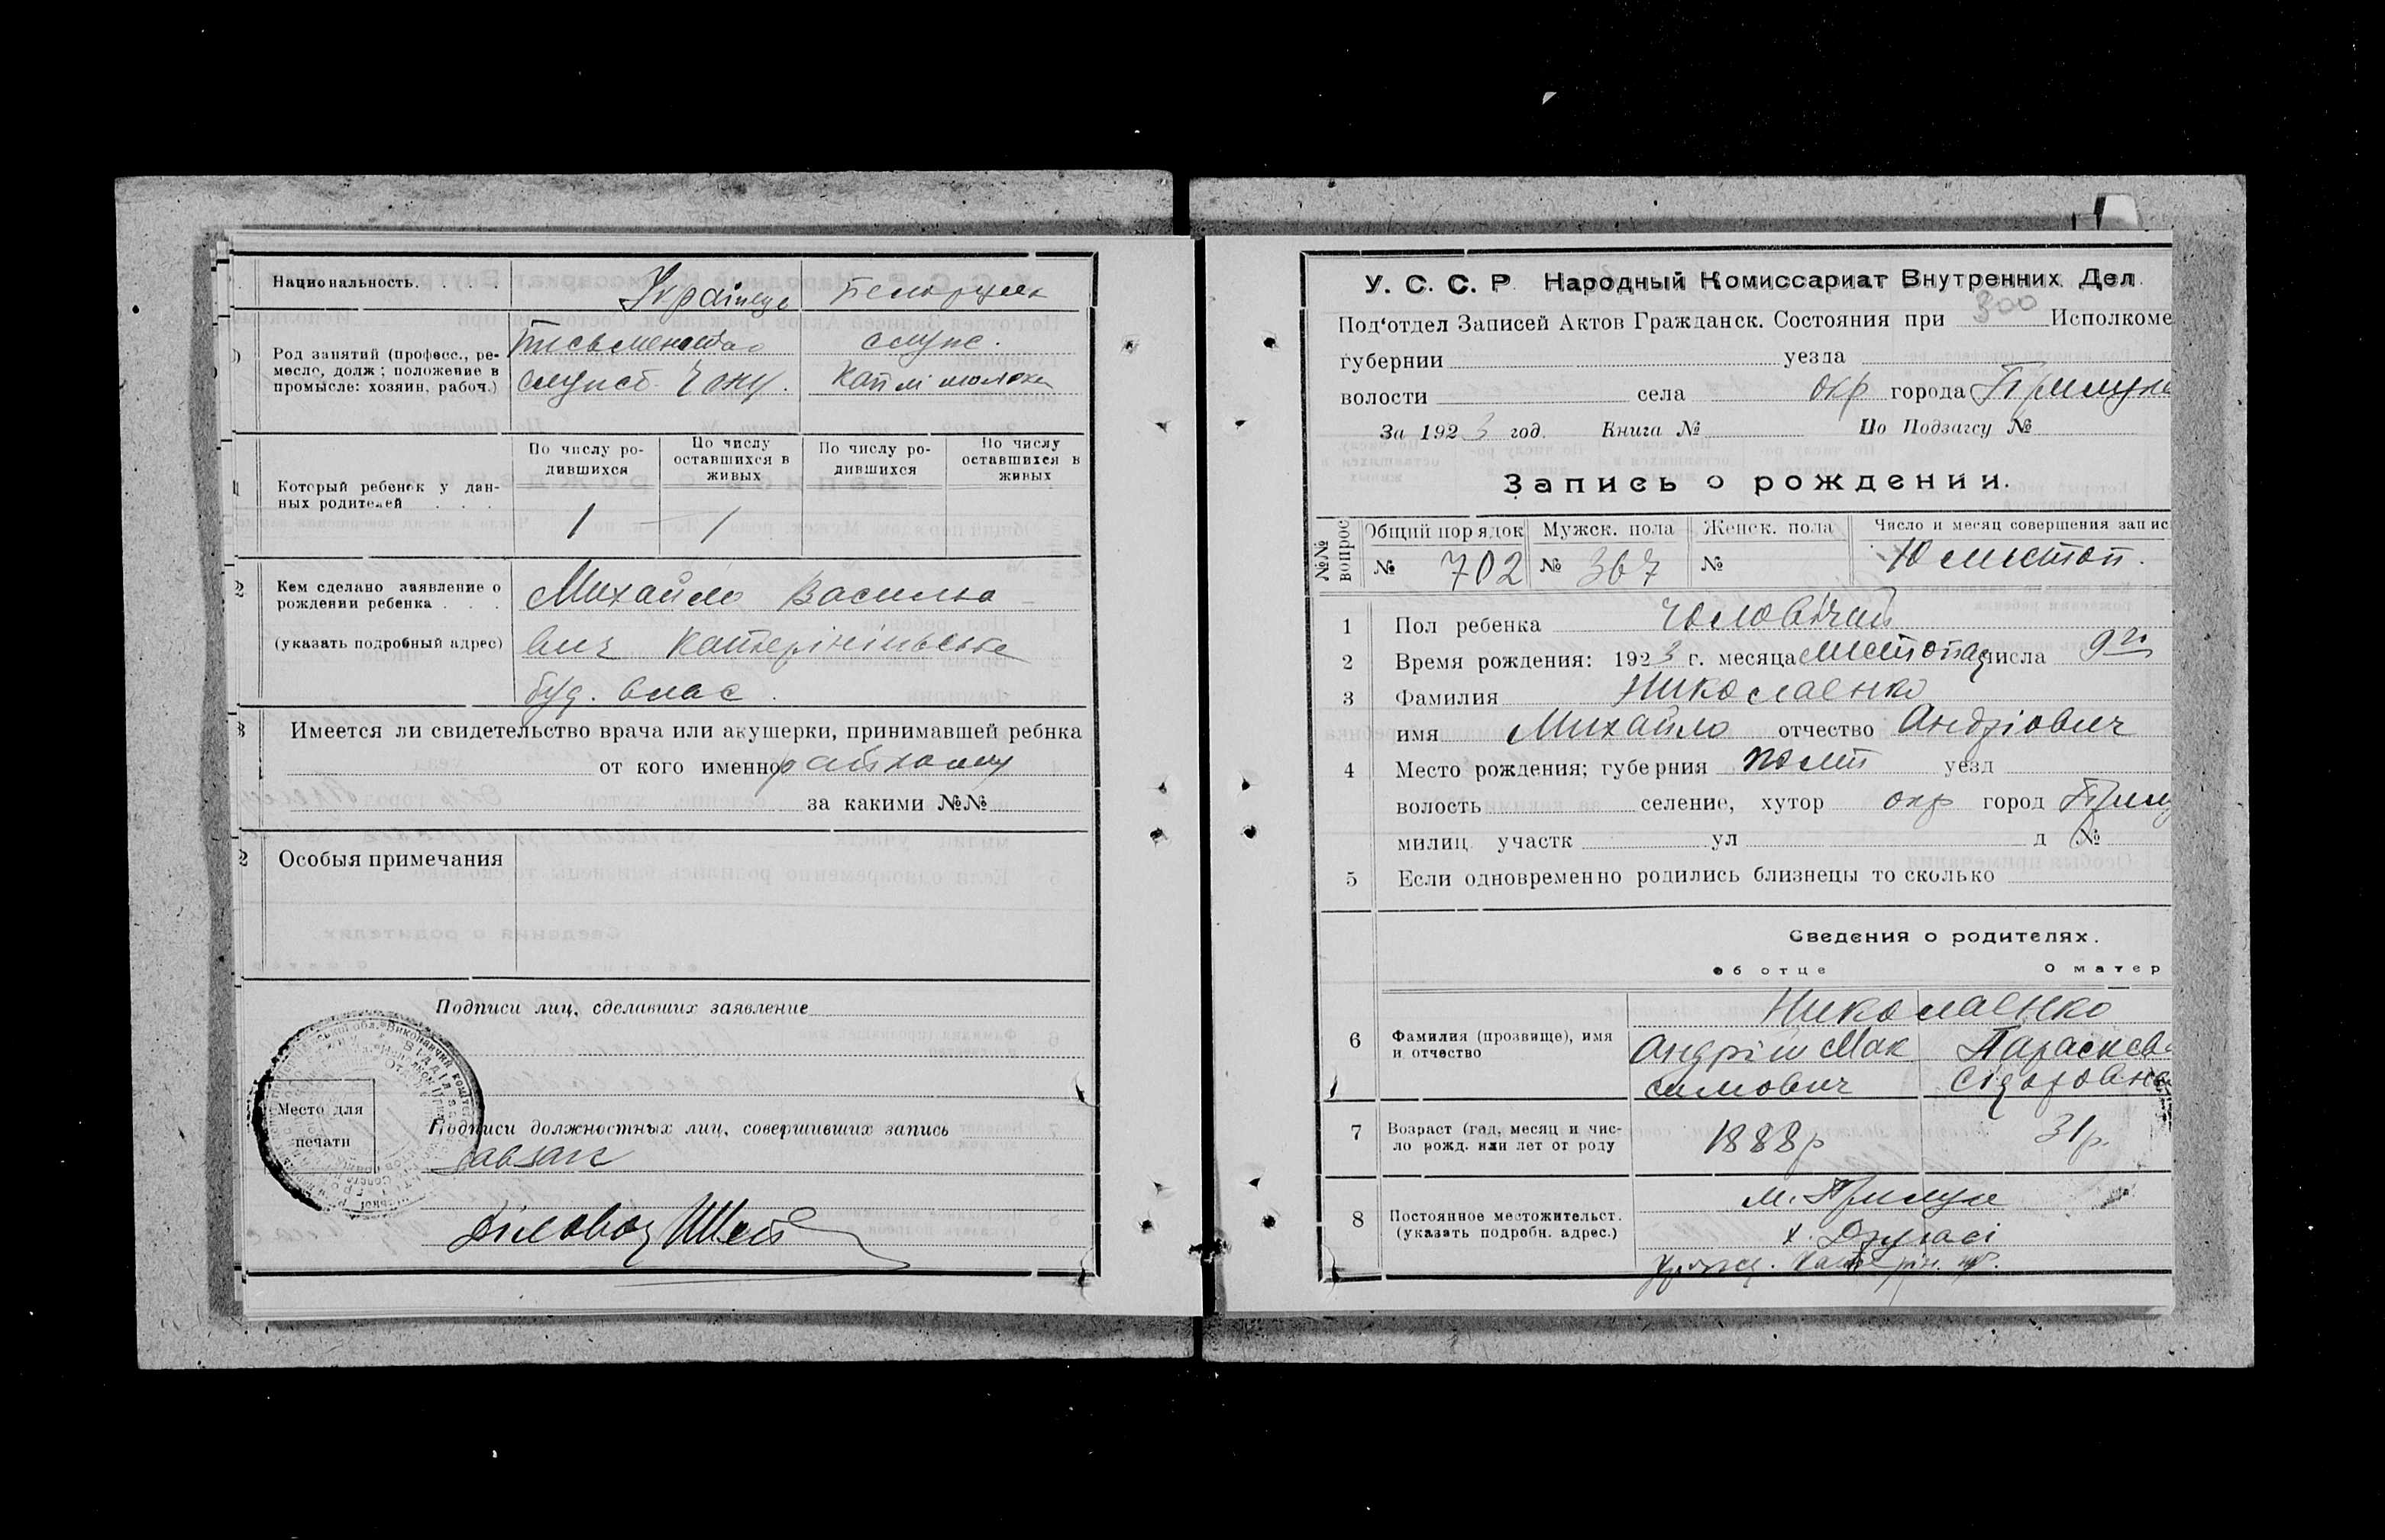 Национальность. . . . . Українець
Род занятий (професс., ре-
месло, долж; положение в
промысле: хозяин, рабоч.)
служ.
По числу ро-
дившихся
По числу
оставшихся в
живых
По числу ро-
дившихся
По числу
оставшихся в
живых
Который ребенок у дан-
ных родителей . . .
1 1
2 Кем сделано заявление о
рождении ребенка . . .
(указать подробный адрес)
Михайло Василье
вич
буд. влас.
3 Имеется ли свидетельство врача или акушерки, принимавшей ребнка
от кого именно
за какими №№
2 Особыя примечания
Подписи лиц, сделавших заявление
Место для
печати
Подписи должностных лиц, совершивших запись
Завзагс
Діловод
У. С. С. Р. Народный Комиссариат Внутренних Дел.
300
Под‘отдел Записей Актов Гражданск. Состояния при Исполкоме
губернии уезда
волости села окр города Прилуки
За 1923 год. Книга № По Подзагсу №
Запись о рождении.
№№ вопрос
Общий порядок Мужск. пола Женск. пола Число и месяц совершения запис
№ 702 № 367 № 10 листоп.
1 Пол ребенка Чоловічий
2 Время рождения: 1923 г. месяца листопад числа 9го
3 Фамилия Николаенко
имя Михайло отчество Андріович
4 Место рождения; губерния Полт уезд
волость селение, хутор окр город Прилу
милиц. участк ул д №
5 Если одновременно родились близнецы то сколько
Сведения о родителях.
об отце О матер
Николаенко
6 Фамилия (прозвище), имя
и отчество
Андрій Мак
симович
Параскева
Сідоровна
7 Возраст (год, месяц и чис-
ло рожд. или лет от роду
1888р 31р.
8 Постоянное местожительст.
(указать подробн. адрес.)
м. Прилуки